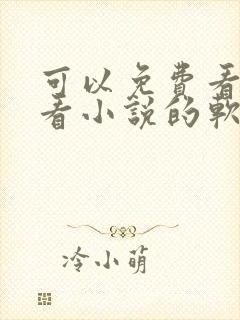 可以免费看
看小说的软
冷小萌